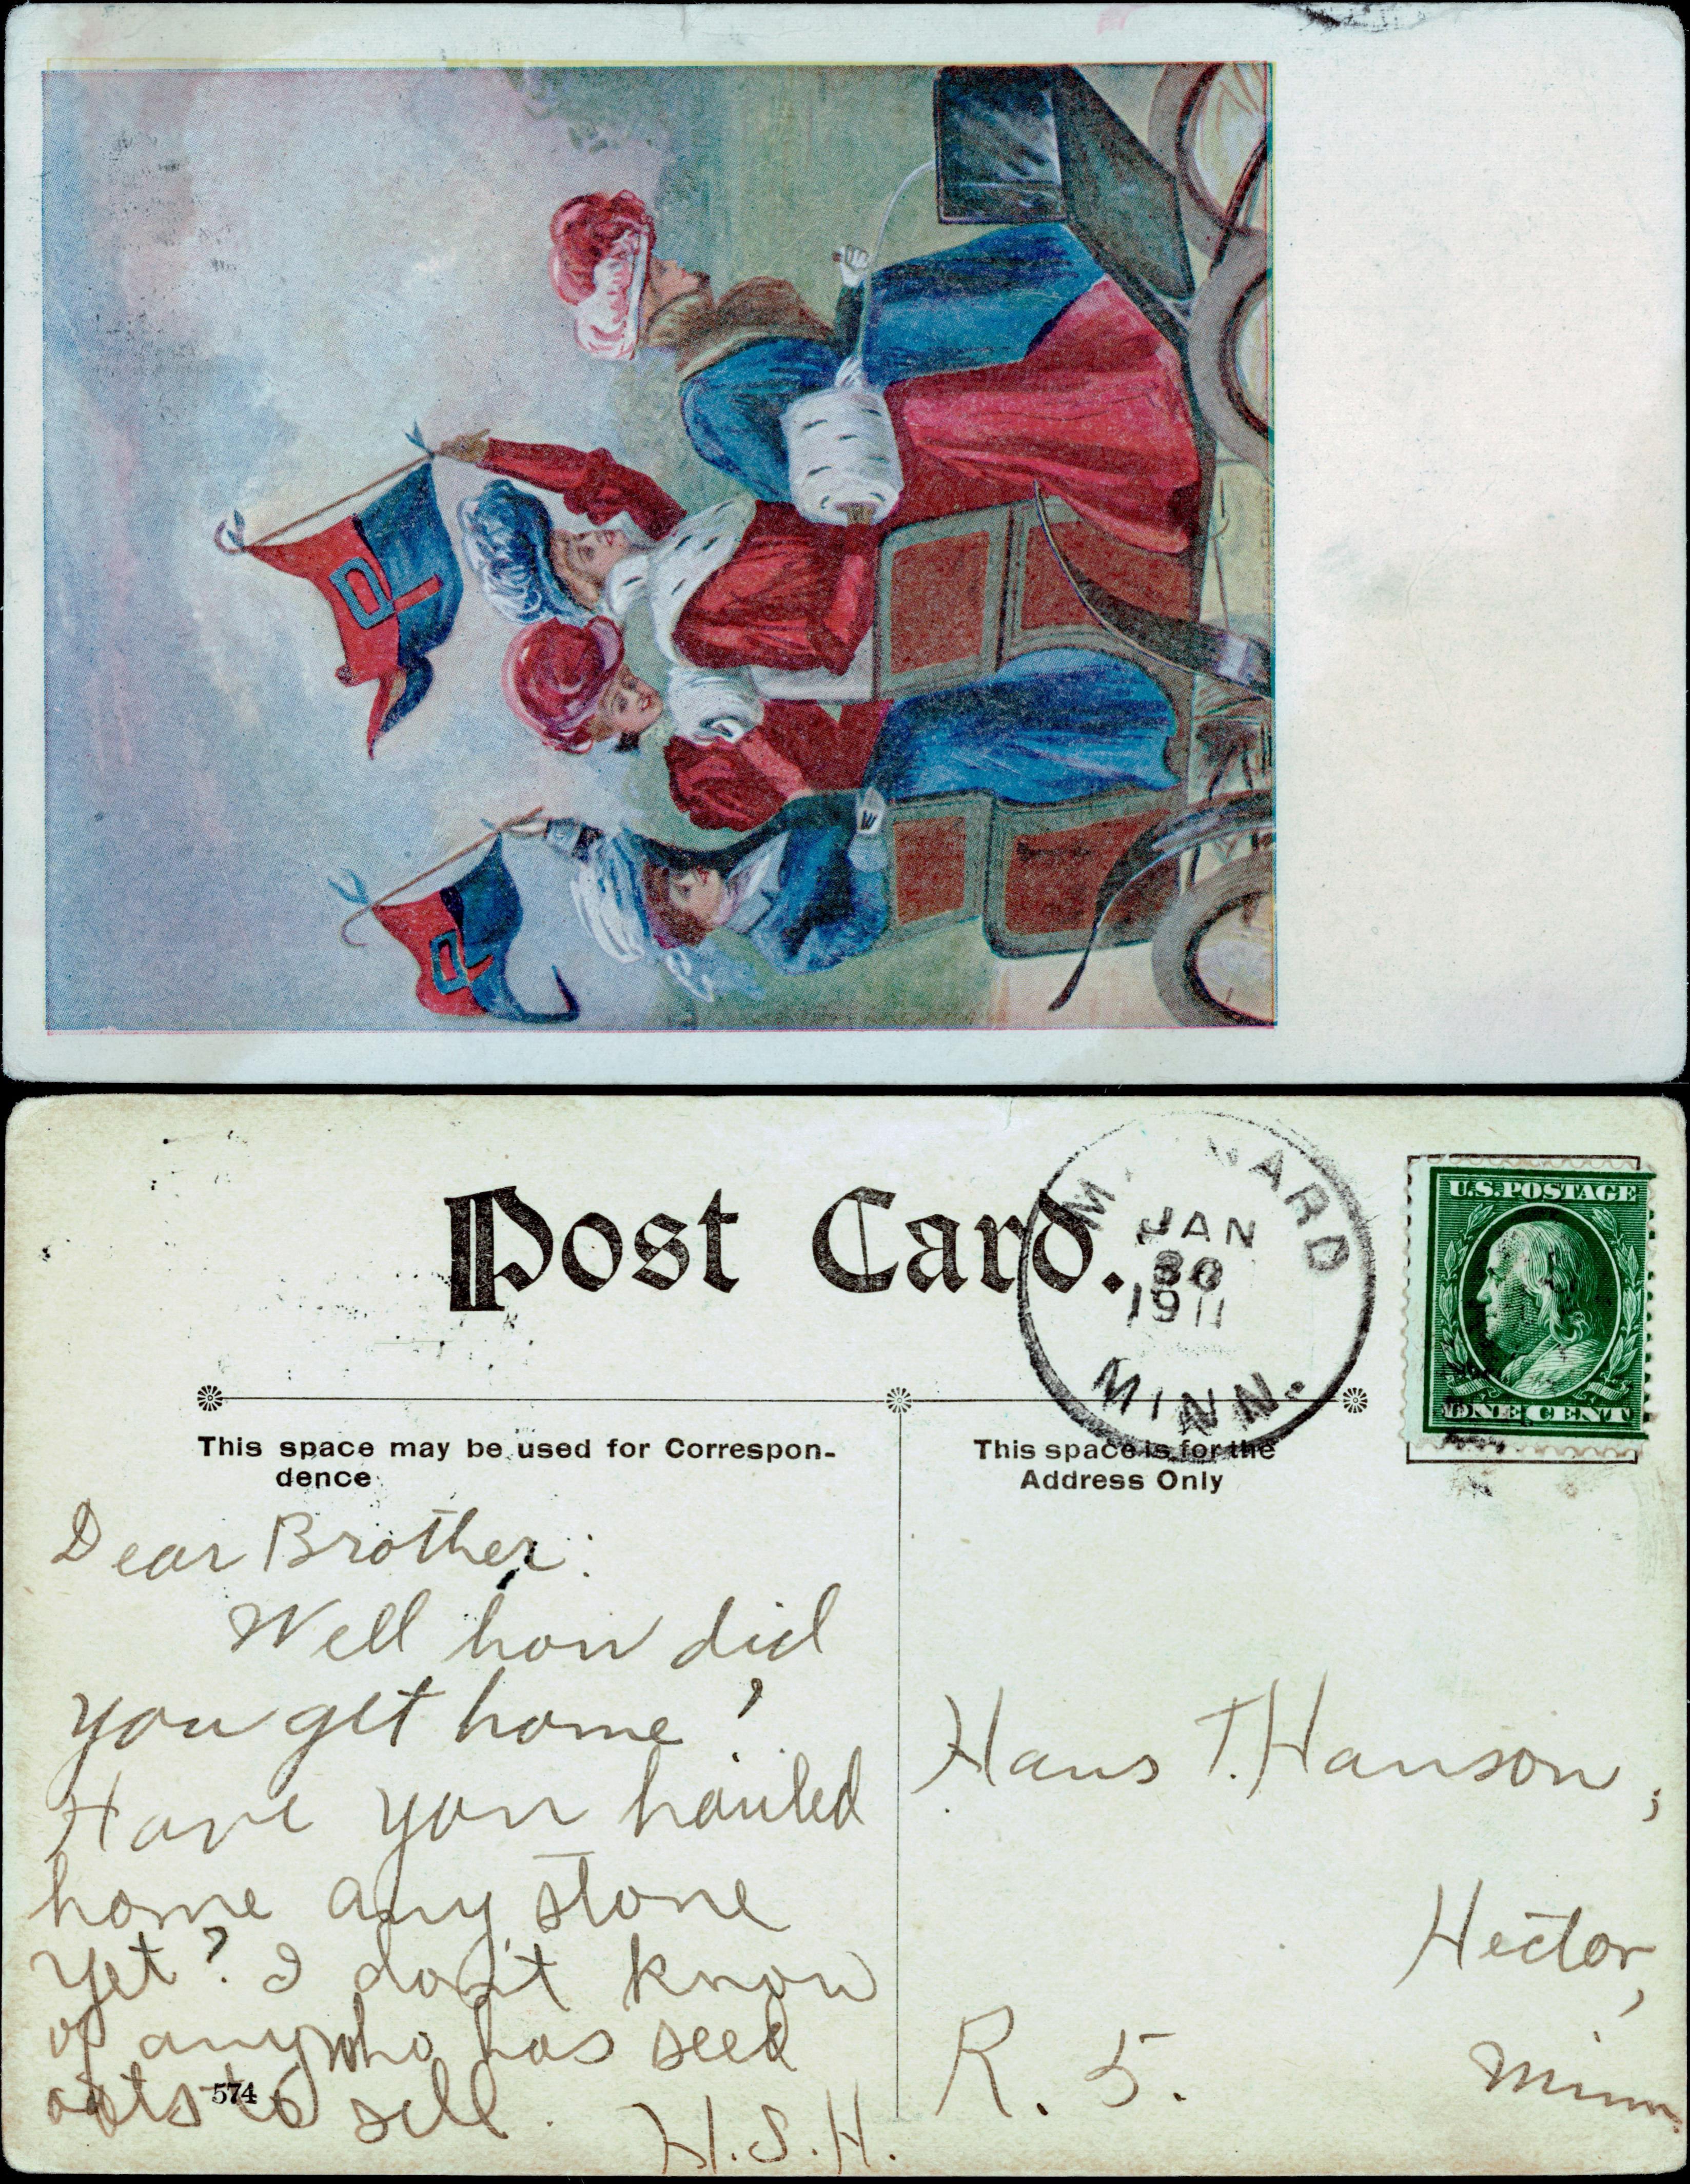 P
P
Post Card.
JAN
30
1911
MINN.
U.S. POSTAGE
ONE CENT
This space may be used for Correspon-
dence
This space is for the
Address Only
Dear Brother:
Well how did
you get home?
Have you hauled
home any stone
yet? I don't know
of any who has seed
oats to sell.
H.S.H.
574
Hans T. Hanson,
Hector,
R. 5.
Minn.